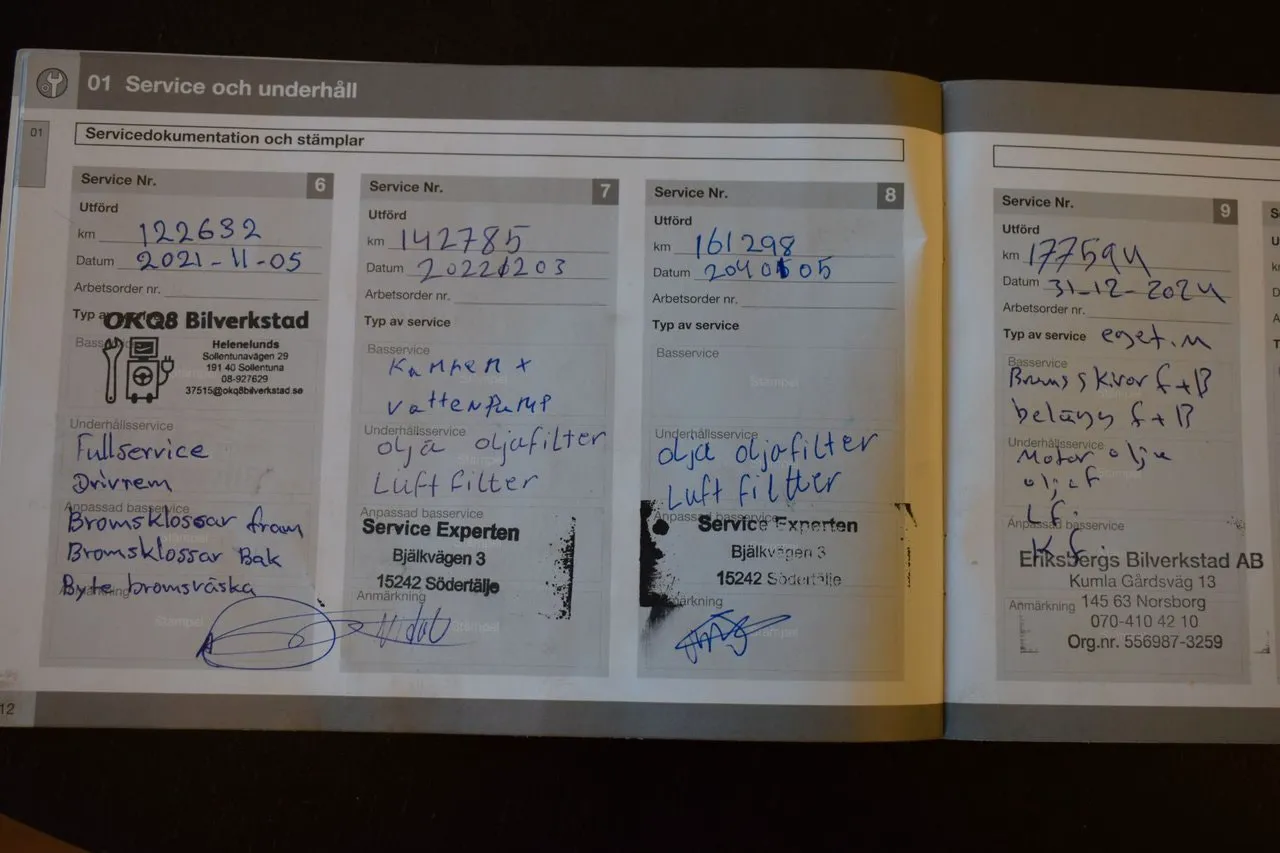 01 Service och underhåll
01
Servicedokumentation och stämplar
Service Nr. 6
Utförd
km 122632
Datum 2021-11-05
Arbetsorder nr.
Typ av
OKQ8 Bilverkstad
Helenelunds
Sollentunavägen 29
191 40 Sollentuna
08-927629
37515@okq8bilverkstad.se
Underhållsservice
Fullservice
Drivrem
Anpassad basservice
Bromsklossar fram
Bromsklossar Bak
Byte bromsväska
Anmärkning
Stämpel
12
Service Nr. 7
Utförd
km 142785
Datum 20221203
Arbetsorder nr.
Typ av service
Basservice
Kamrem +
vattenpump
Underhållsservice
olja oljafilter
Luftfilter
Anpassad basservice
Service Experten
Bjälkvägen 3
15242 Södertälje
Anmärkning
Stämpel
Service Nr. 8
Utförd
km 161298
Datum
Arbetsorder nr.
Typ av service
Basservice
Stämpel
Underhållsservice
olja oljafilter
Luftfiltter
Anpassad basservice
Service Experten
Bjälkvägen 3
15242 Södertälje
Anmärkning
Stämpel
Service Nr. 9
Utförd
km 177594
Datum 31-12-2024
Arbetsorder nr.
Typ av service eget.m
Basservice
Bromsskivor f+B
belägg f+B
Underhållsservice
Motor olja
oljef
Lf.
Anpassad basservice
Kf.
Eriksbergs Bilverkstad AB
Kumla Gårdsväg 13
Anmärkning
145 63 Norsborg
070-410 42 10
Org.nr. 556987-3259